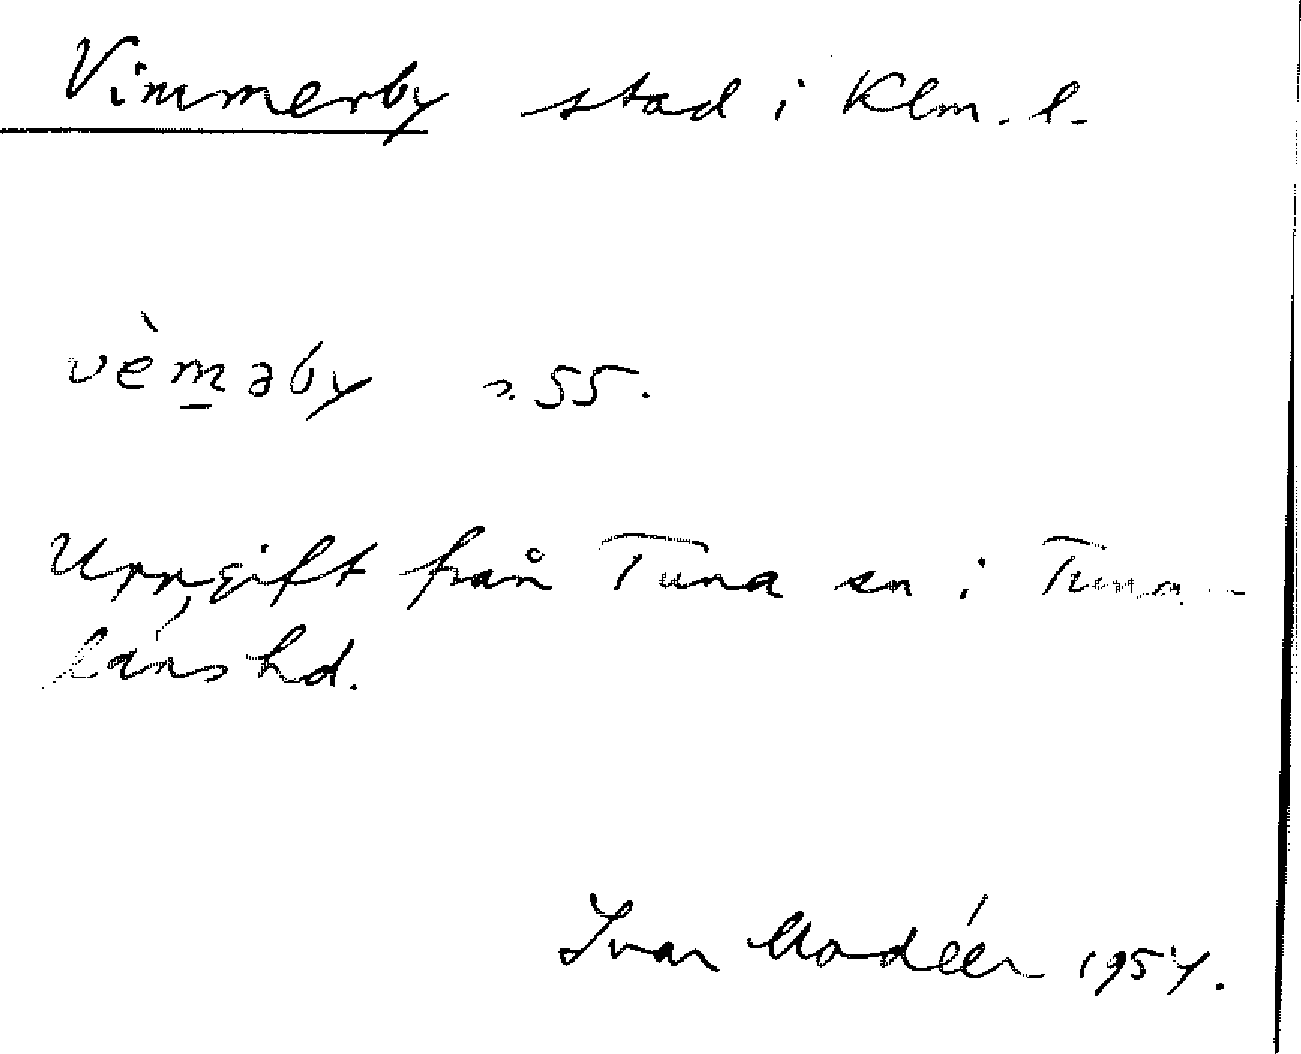 Vimmerby stad i Klm. l.
vèm̲əby 55.
Uppgift från Tuna sn i Tuna-
länshd.
Ivar Modéer 1957.